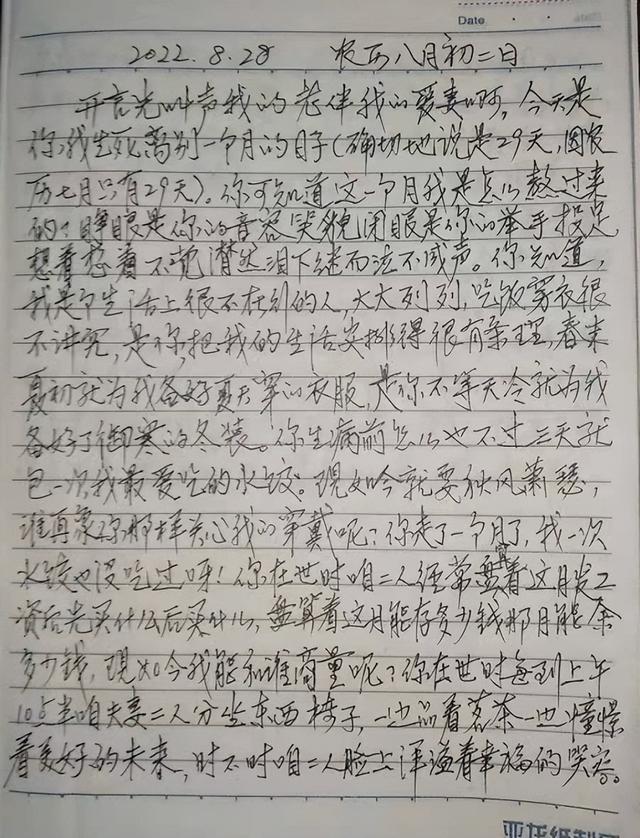 Date
2022.8.28 农历八月初二日
开言先叫声我的老伴我的爱妻啊,今天是
你我生死离别一个月的日子(确切地说是29天,因农
历七月只有29天)。你可知道这一个月我是怎么熬过来
的?睁眼是你的音容笑貌闭眼是你的举手投足,
想着想着不觉潸然泪下继而泣不成声。你知道,
我是个生活上很不在乎的人,大大列列,吃饭穿衣很
不讲究,是你把我的生活安排得很有条理,春末
夏初就为我备好夏天穿的衣服,是你不等天冷就为我
备好了御寒的冬装。你生病前怎么也不过三天就
包一次我最爱吃的水饺。现如今就要秋风萧瑟,
谁再象你那样关心我的穿戴呢?你走了一个月了,我一次
水饺也没吃过呀!你在世时咱二人经常盘算着这月发工
资后先买什么后买什么,盘算着这月能存多少钱那月能余
多少钱,现如今我能和谁商量呢?你在世时每到上午
10点半咱夫妻二人分坐东西椅子,一边品着茗茶一边憧憬
着美好的未来,时不时咱二人脸上洋溢着幸福的笑容。